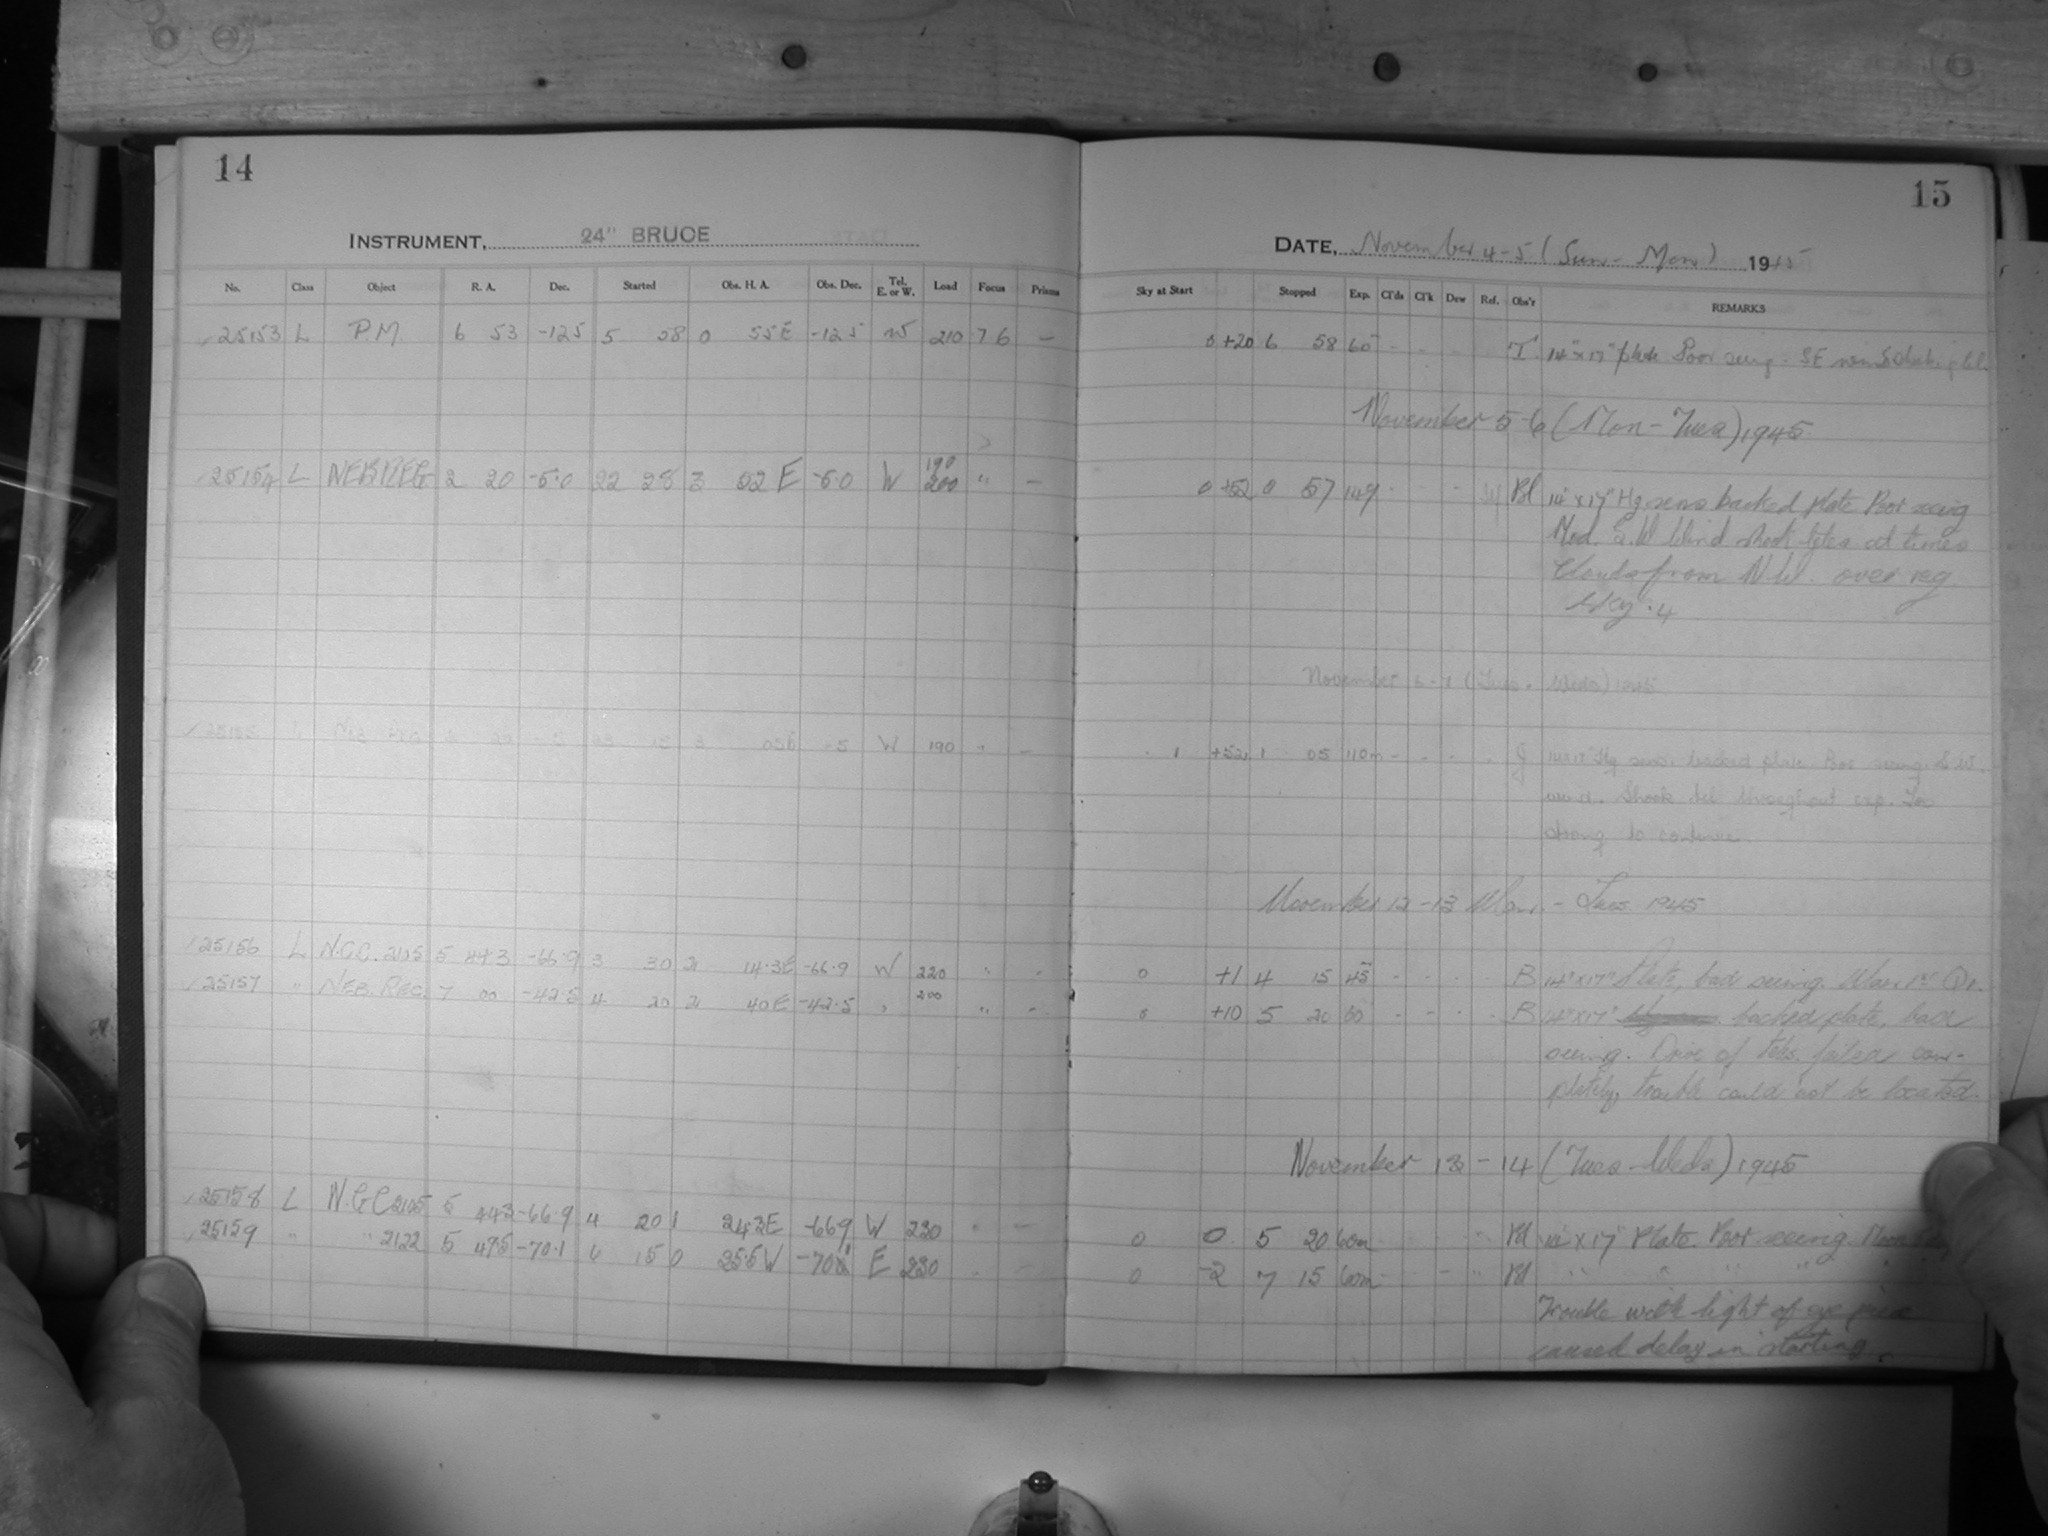 14
INSTRUMENT, 24" BRUCE
No. Class Object R. A. Dec. Started Obs. H. A. Obs. Dec. Tel. E. or W. Load Focus Prisms
25153 L P.M 6 53 -12.5 5 58 0 55E -12.5 W 210 7 6 —
25154 L NEB REG 2 20 -5.0 22 28 3 52 E -5.0 W 190 200 " —
W 190 " —
25156 L N.G.C. 2105 5 44.3 -66.9 3 30 2 14.3E -66.9 W 220 " "
25157 " NEB. REG. 7 00 -42.5 4 20 2 40E -42.5 " 200 " "
25158 L N.G.C 2105 5 44.3 -66.9 4 20 1 24.3E -66.9 W 230 " —
25159 " " 2122 5 49.5 -70.1 6 15 0 25.5W -70.1 E 230
15
DATE, November 4-5 (Sun - Mon) 1945
Sky at Start Stopped Exp. Cl'ds Cl'k Dew Ref. Obs'r REMARKS
0 +20 6 58 60 - - - T. 14"x17" plate Poor seeing.
November 5-6 (Mon - Tues) 1945
0 +52 0 57 149 - - Bl 14"x17" Hg sens backed plate Poor seeing
Mod. S.W Wind shook teles at times
Clouds from N.W. over reg
sky .4
November 6-7 (Tues - Weds) 1945
1 +52 1 05 110m - - - - J 14x17 Hg sens. backed plate. Poor seeing. S.W.
wind. Shook tel throughout exp. Too
strong to continue.
November 12-13 Mon. - Tues. 1945
0 +1 4 15 45 - - - - B 14"x17" Plate, bad seeing. Moon 1st Qr.
0 +10 5 20 60 - - - - B 14"x17" backed plate, bad
seeing. Drive of teles. failed com-
pletely, trouble could not be located.
November 13 - 14 (Tues - Weds) 1945
0 0 5 20 60m Bl 14"x17" Plate. Poor seeing. Moon
0 -2 7 15 60m - " Bl " " " "
Trouble with light of eye piece
caused delay in starting.